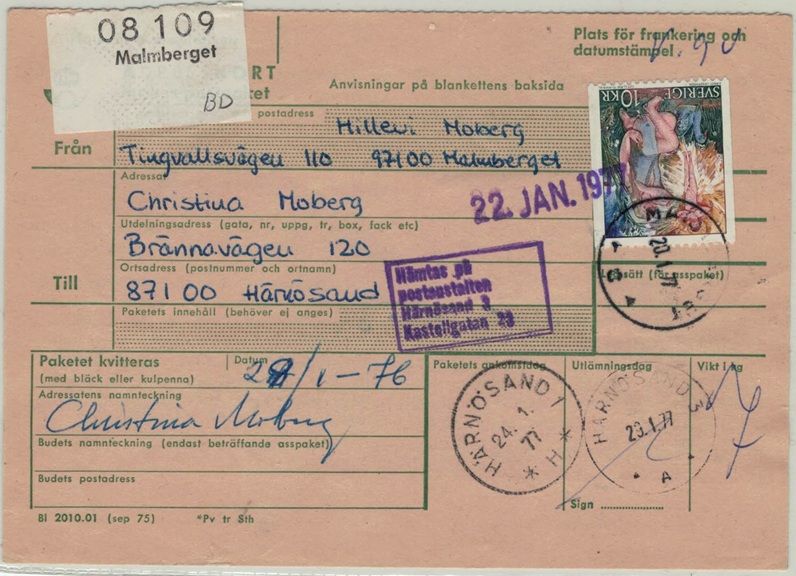 08 109
Malmberget
BD
Plats för frankering och
datumstämpel
Anvisningar på blankettens baksida
10 KR
SVERIGE
Från
postadress
Hillevi Moberg
Tingvallsvägen 110 97100 Malmberget
Adressat
Christina Moberg
22. JAN. 1977
Utdelningsadress (gata, nr, uppg, tr, box, fack etc)
Brännavägen 120
20.1.77
Till
Ortsadress (postnummer och ortnamn)
871 00 Härnösand
Hämtas på
postanstalten
Härnösand 3
Kastellgatan 29
(för asspaket)
Paketets innehåll (behöver ej anges)
Paketet kvitteras
(med bläck eller kulpenna)
Datum
/1-76
Paketets ankomstdag
Utlämningsdag
Vikt i kg
7
Adressatens namnteckning
Christina Moberg
HÄRNÖSAND 1
24.1.
77
* H *
HÄRNÖSAND 3
A
Budets namnteckning (endast beträffande asspaket)
Budets postadress
Sign
Bl 2010.01 (sep 75) *Pv tr Sth